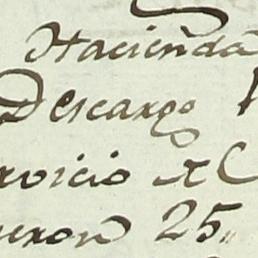 Hacienda
Descargo
rvicio
ueron 25,,